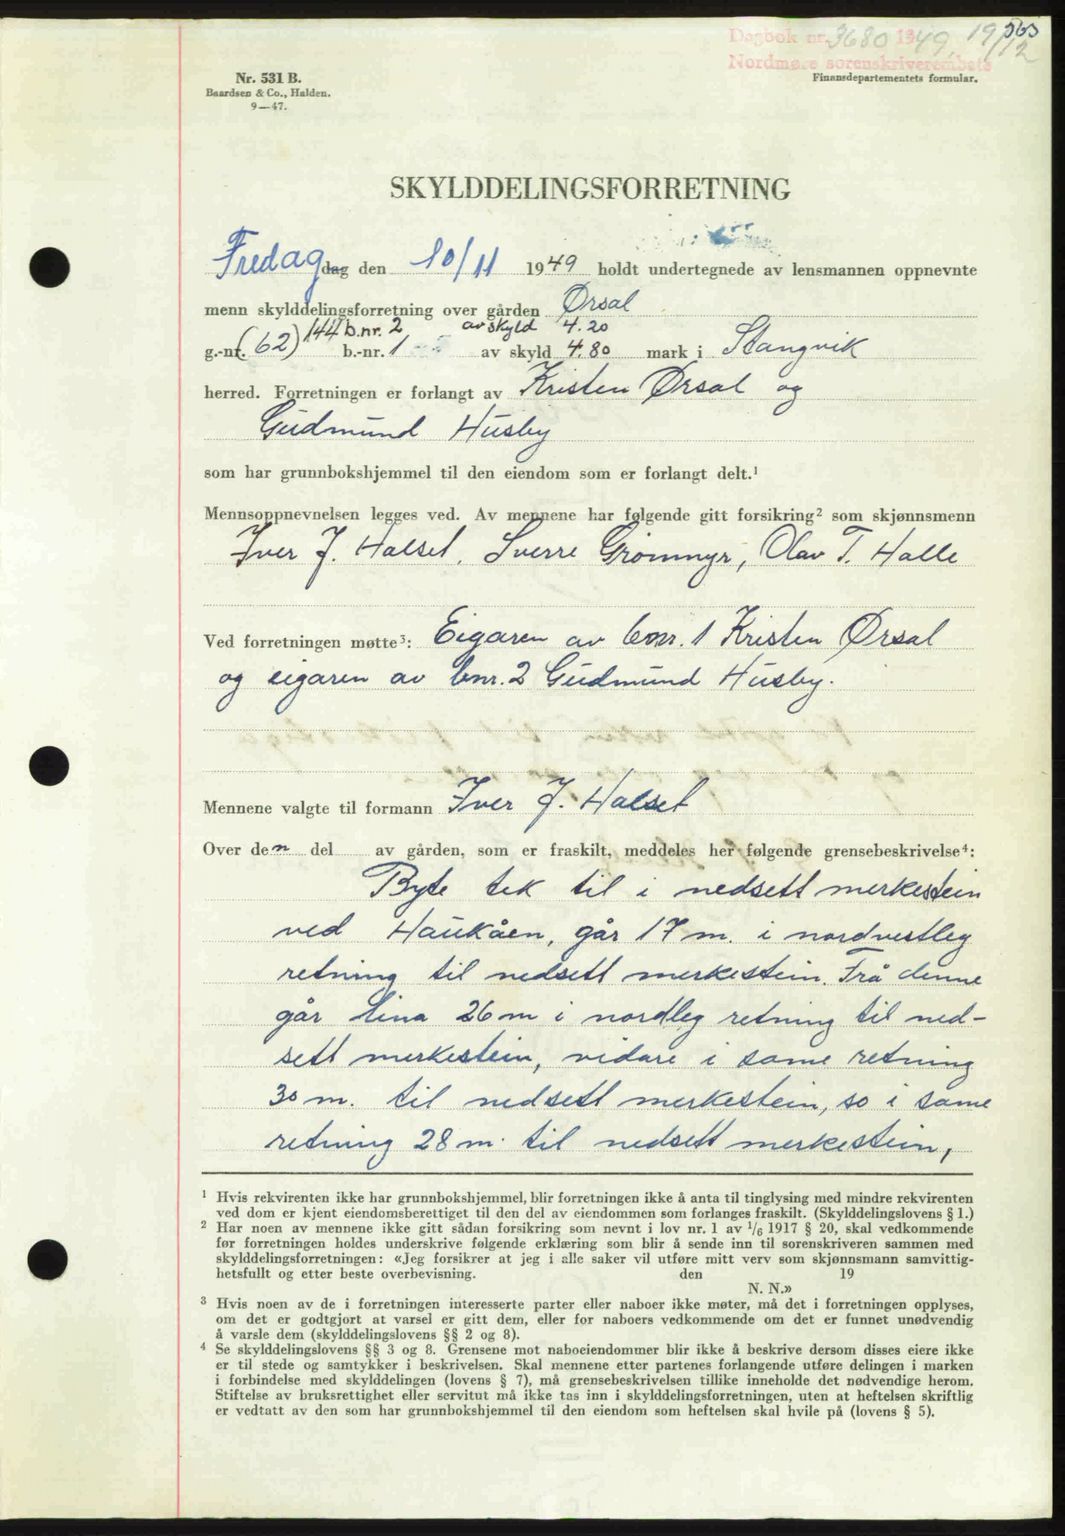 Dagbok nr. 3680 1949. 19/12
563
Nordmøre sorenskriverembete
Nr. 531 B.
Baardsen & Co., Halden.
9—47.
Finansdepartementets formular.
SKYLDDELINGSFORRETNING
Fredag dag den 10/11 1949 holdt undertegnede av lensmannen oppnevnte
menn skylddelingsforretning over gården Ørsal
144 b.nr. 2 av skyld 4.20
g.-nr. (62) b.-nr. 1 av skyld 4.80 mark i Stangvik
herred. Forretningen er forlangt av Kristen Ørsal og
Gudmund Husby
som har grunnbokshjemmel til den eiendom som er forlangt delt.¹
Mennsoppnevnelsen legges ved. Av mennene har følgende gitt forsikring² som skjønnsmenn
Iver J. Halset, Sverre Grømmyr, Olav T. Halle
Ved forretningen møtte³: Eigaren av bnr. 1 Kristen Ørsal
og eigaren av bnr. 2 Gudmund Husby.
Mennene valgte til formann Iver J. Halset
Over den del av gården, som er fraskilt, meddeles her følgende grensebeskrivelse⁴:
Byte tek til i nedsett merkestein
ved Haukåen, går 17 m. i nordvestleg
retning til nedsett merkestein. Frå denne
går lina 26 m i nordleg retning til ned-
sett merkestein, vidare i same retning
30 m. til nedsett merkestein, so i same
retning 28 m. til nedsett merkestein,
¹ Hvis rekvirenten ikke har grunnbokshjemmel, blir forretningen ikke å anta til tinglysing med mindre rekvirenten
ved dom er kjent eiendomsberettiget til den del av eiendommen som forlanges fraskilt. (Skylddelingslovens § 1.)
² Har noen av mennene ikke gitt sådan forsikring som nevnt i lov nr. 1 av 1/6 1917 § 20, skal vedkommende
før forretningen holdes underskrive følgende erklæring som blir å sende inn til sorenskriveren sammen med
skylddelingsforretningen: «Jeg forsikrer at jeg i alle saker vil utføre mitt verv som skjønnsmann samvittig-
hetsfullt og etter beste overbevisning. den 19
N. N.»
³ Hvis noen av de i forretningen interesserte parter eller naboer ikke møter, må det i forretningen opplyses,
om det er godtgjort at varsel er gitt dem, eller for naboers vedkommende om det er funnet unødvendig
å varsle dem (skylddelingslovens §§ 2 og 8).
⁴ Se skylddelingslovens §§ 3 og 8. Grensene mot naboeiendommer blir ikke å beskrive dersom disses eiere ikke
er til stede og samtykker i beskrivelsen. Skal mennene etter partenes forlangende utføre delingen i marken
i forbindelse med skylddelingen (lovens § 7), må grensebeskrivelsen tillike inneholde det nødvendige herom.
Stiftelse av bruksrettighet eller servitut må ikke tas inn i skylddelingsforretningen, uten at heftelsen skriftlig
er vedtatt av den som har grunnbokshjemmel til den eiendom som heftelsen skal hvile på (lovens § 5).